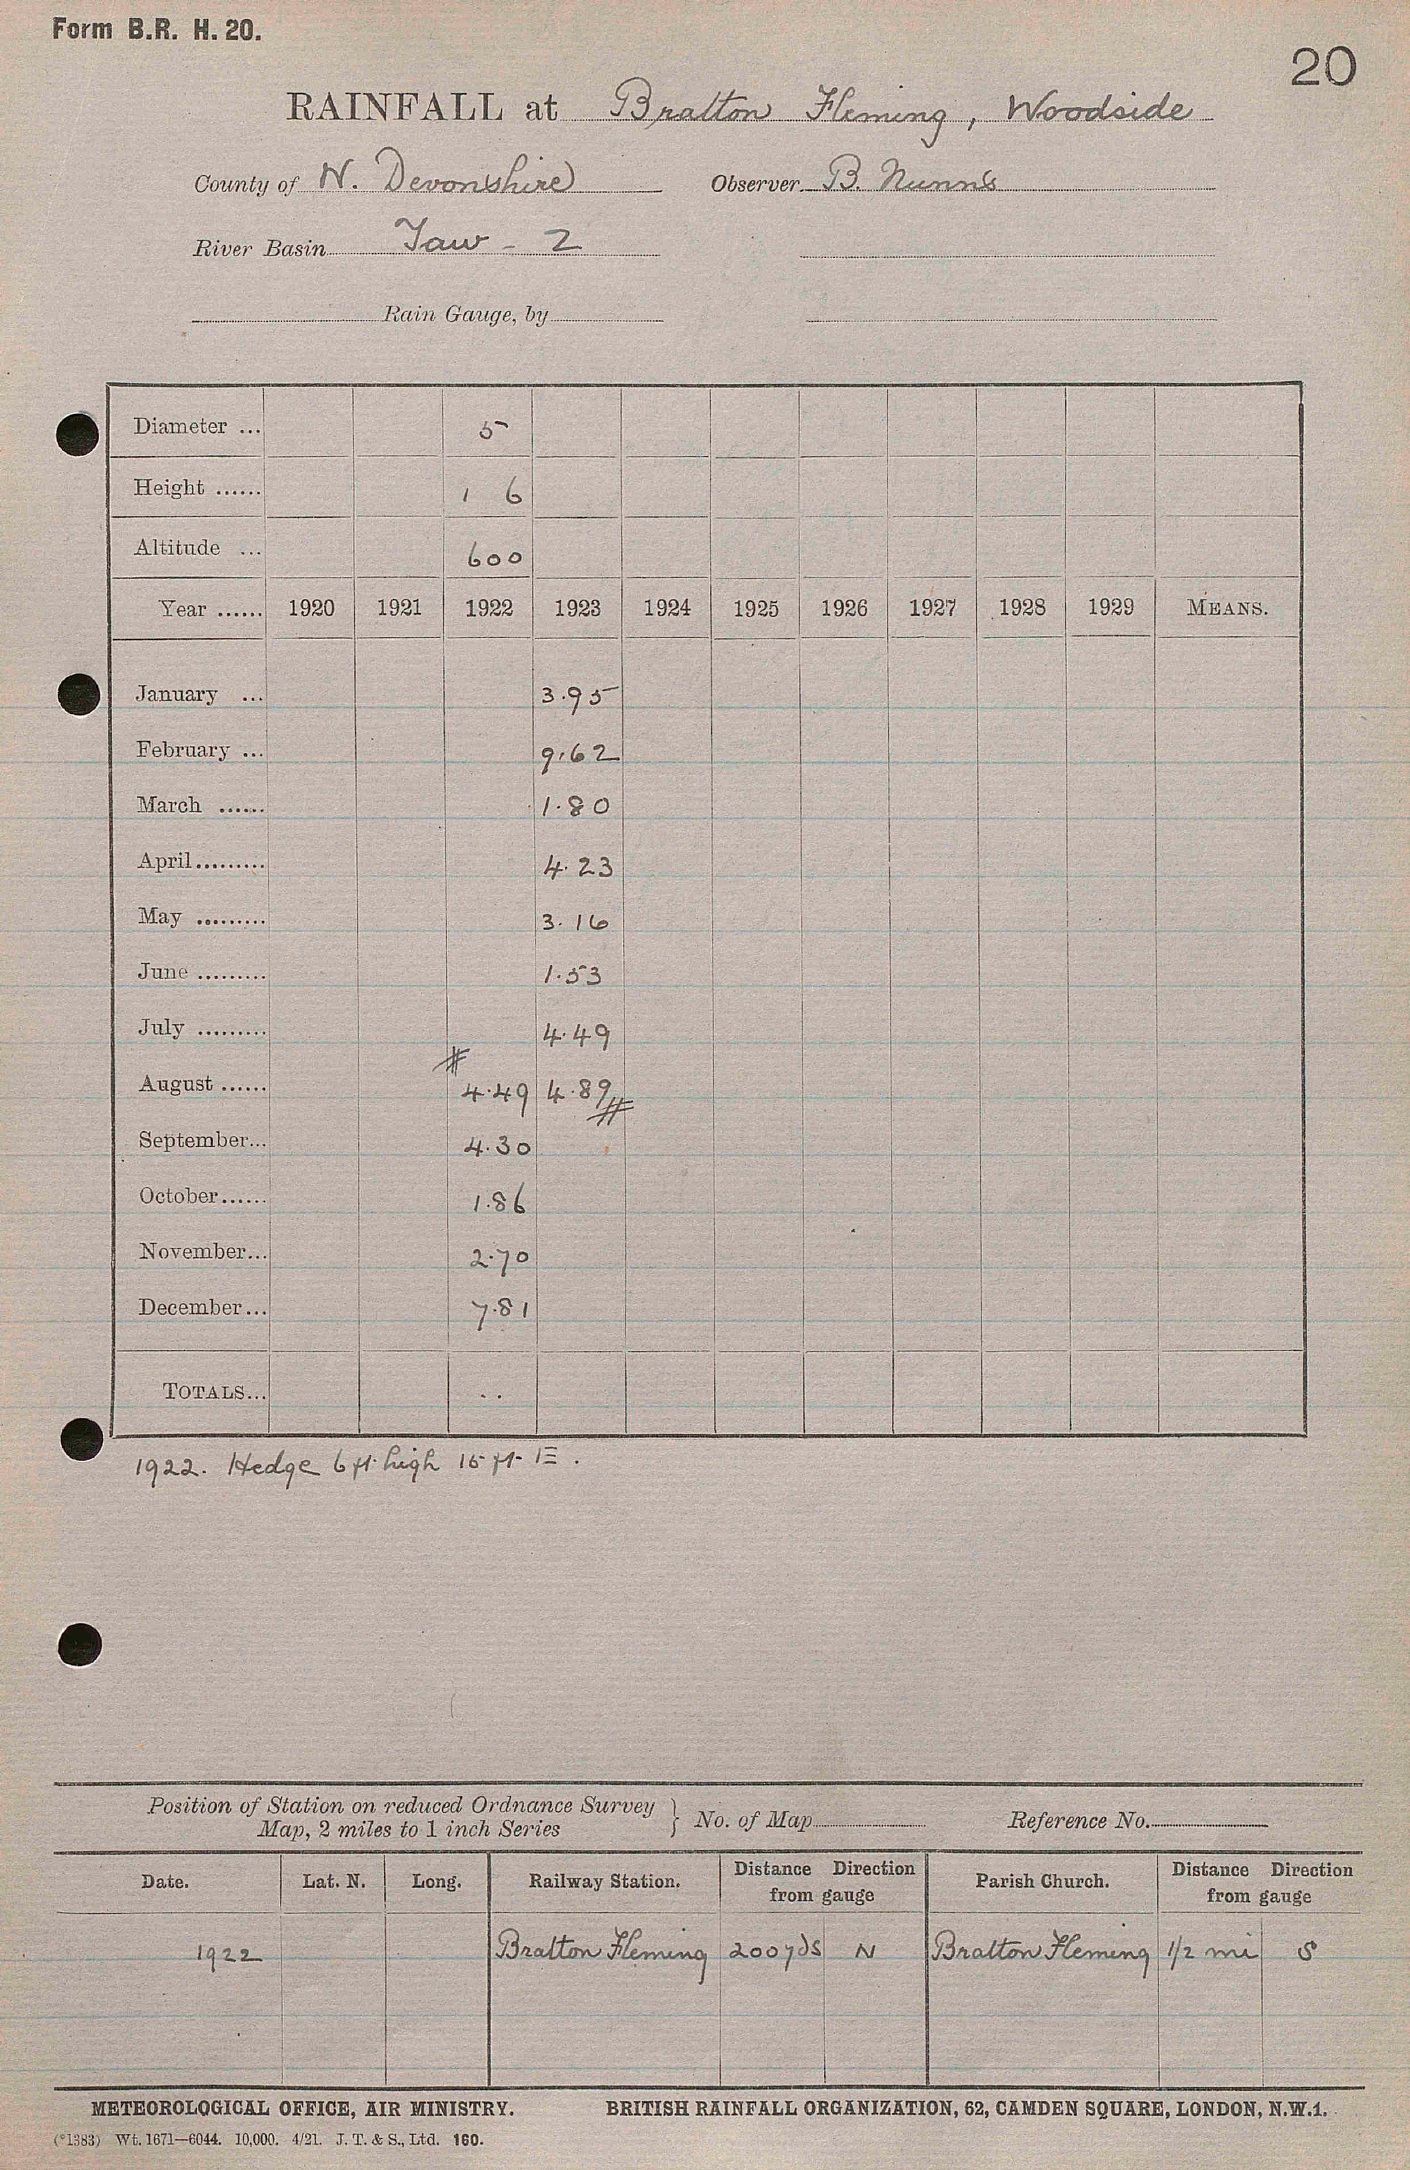 Form B.R. H. 20.
20
RAINFALL at Bratton Fleming, Woodside
County of N. Devonshire Observer B. Nunns
River Basin Taw - 2
Rain Gauge, by
Diameter ... 5
Height ...... 1 6
Altitude ... 600
Year ...... 1920 1921 1922 1923 1924 1925 1926 1927 1928 1929 MEANS.
January ... 3.95
February ... 9.62
March ...... 1.80
April......... 4.23
May ......... 3.16
June ......... 1.53
July ......... 4.49
August ...... # 4.49 4.89 #
September... 4.30
October...... 1.86
November... 2.70
December... 7.81
TOTALS... ..
1922. Hedge 6 ft. high 15 ft. E.
Position of Station on reduced Ordnance Survey
Map, 2 miles to 1 inch Series } No. of Map Reference No.
Date. Lat. N. Long. Railway Station. Distance Direction from gauge Parish Church. Distance Direction from gauge
1922 Bratton Fleming 200 yds N Bratton Fleming 1/2 mi S
METEOROLOGICAL OFFICE, AIR MINISTRY. BRITISH RAINFALL ORGANIZATION, 62, CAMDEN SQUARE, LONDON, N.W.1.
(*1383) Wt. 1671—6044. 10,000. 4/21. J. T. & S., Ltd. 160.